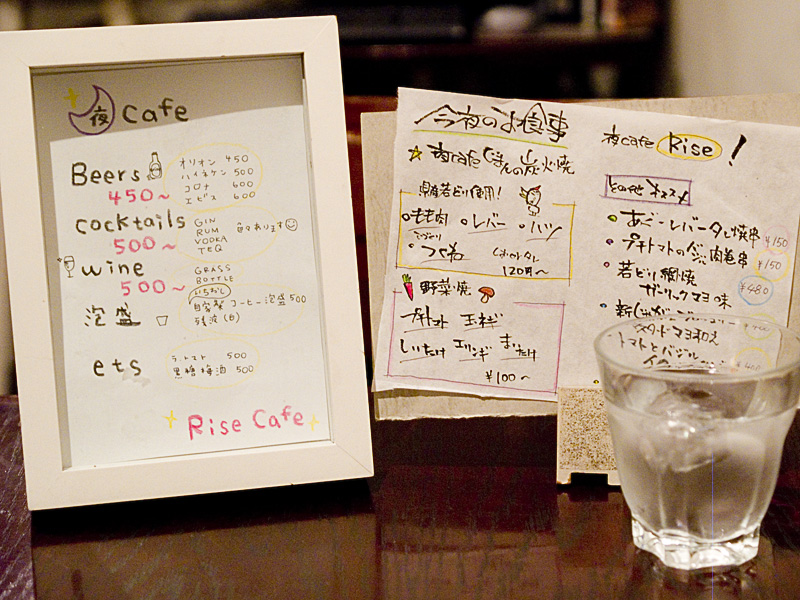 夜 Cafe
Beers
450~
オリオン 450
ハイネケン 500
コロナ 600
エビス 600
cocktails
500~
GIN
RUM
VODKA
TEQ
色々あります
wine
500~
GRASS
BOTTLE
泡盛
いちおし
自家製 コーヒー泡盛 500
残波(白)
ets
500
黒糖梅酒 500
Rise Cafe
今夜のお食事
夜cafe じまんの炭火焼
県産若どり使用!
もも肉 レバー ハツ
つくね
120円~
野菜焼
プチトマト 玉ネギ
しいたけ エリンギ まいたけ
¥100~
夜cafe Rise!
オススメ
バター焼串 ¥150
プチトマトのベーコン肉巻串 ¥150
若どり網焼
ガーリックマヨ味 ¥480
マスタードマヨ和え
トマトとバジル